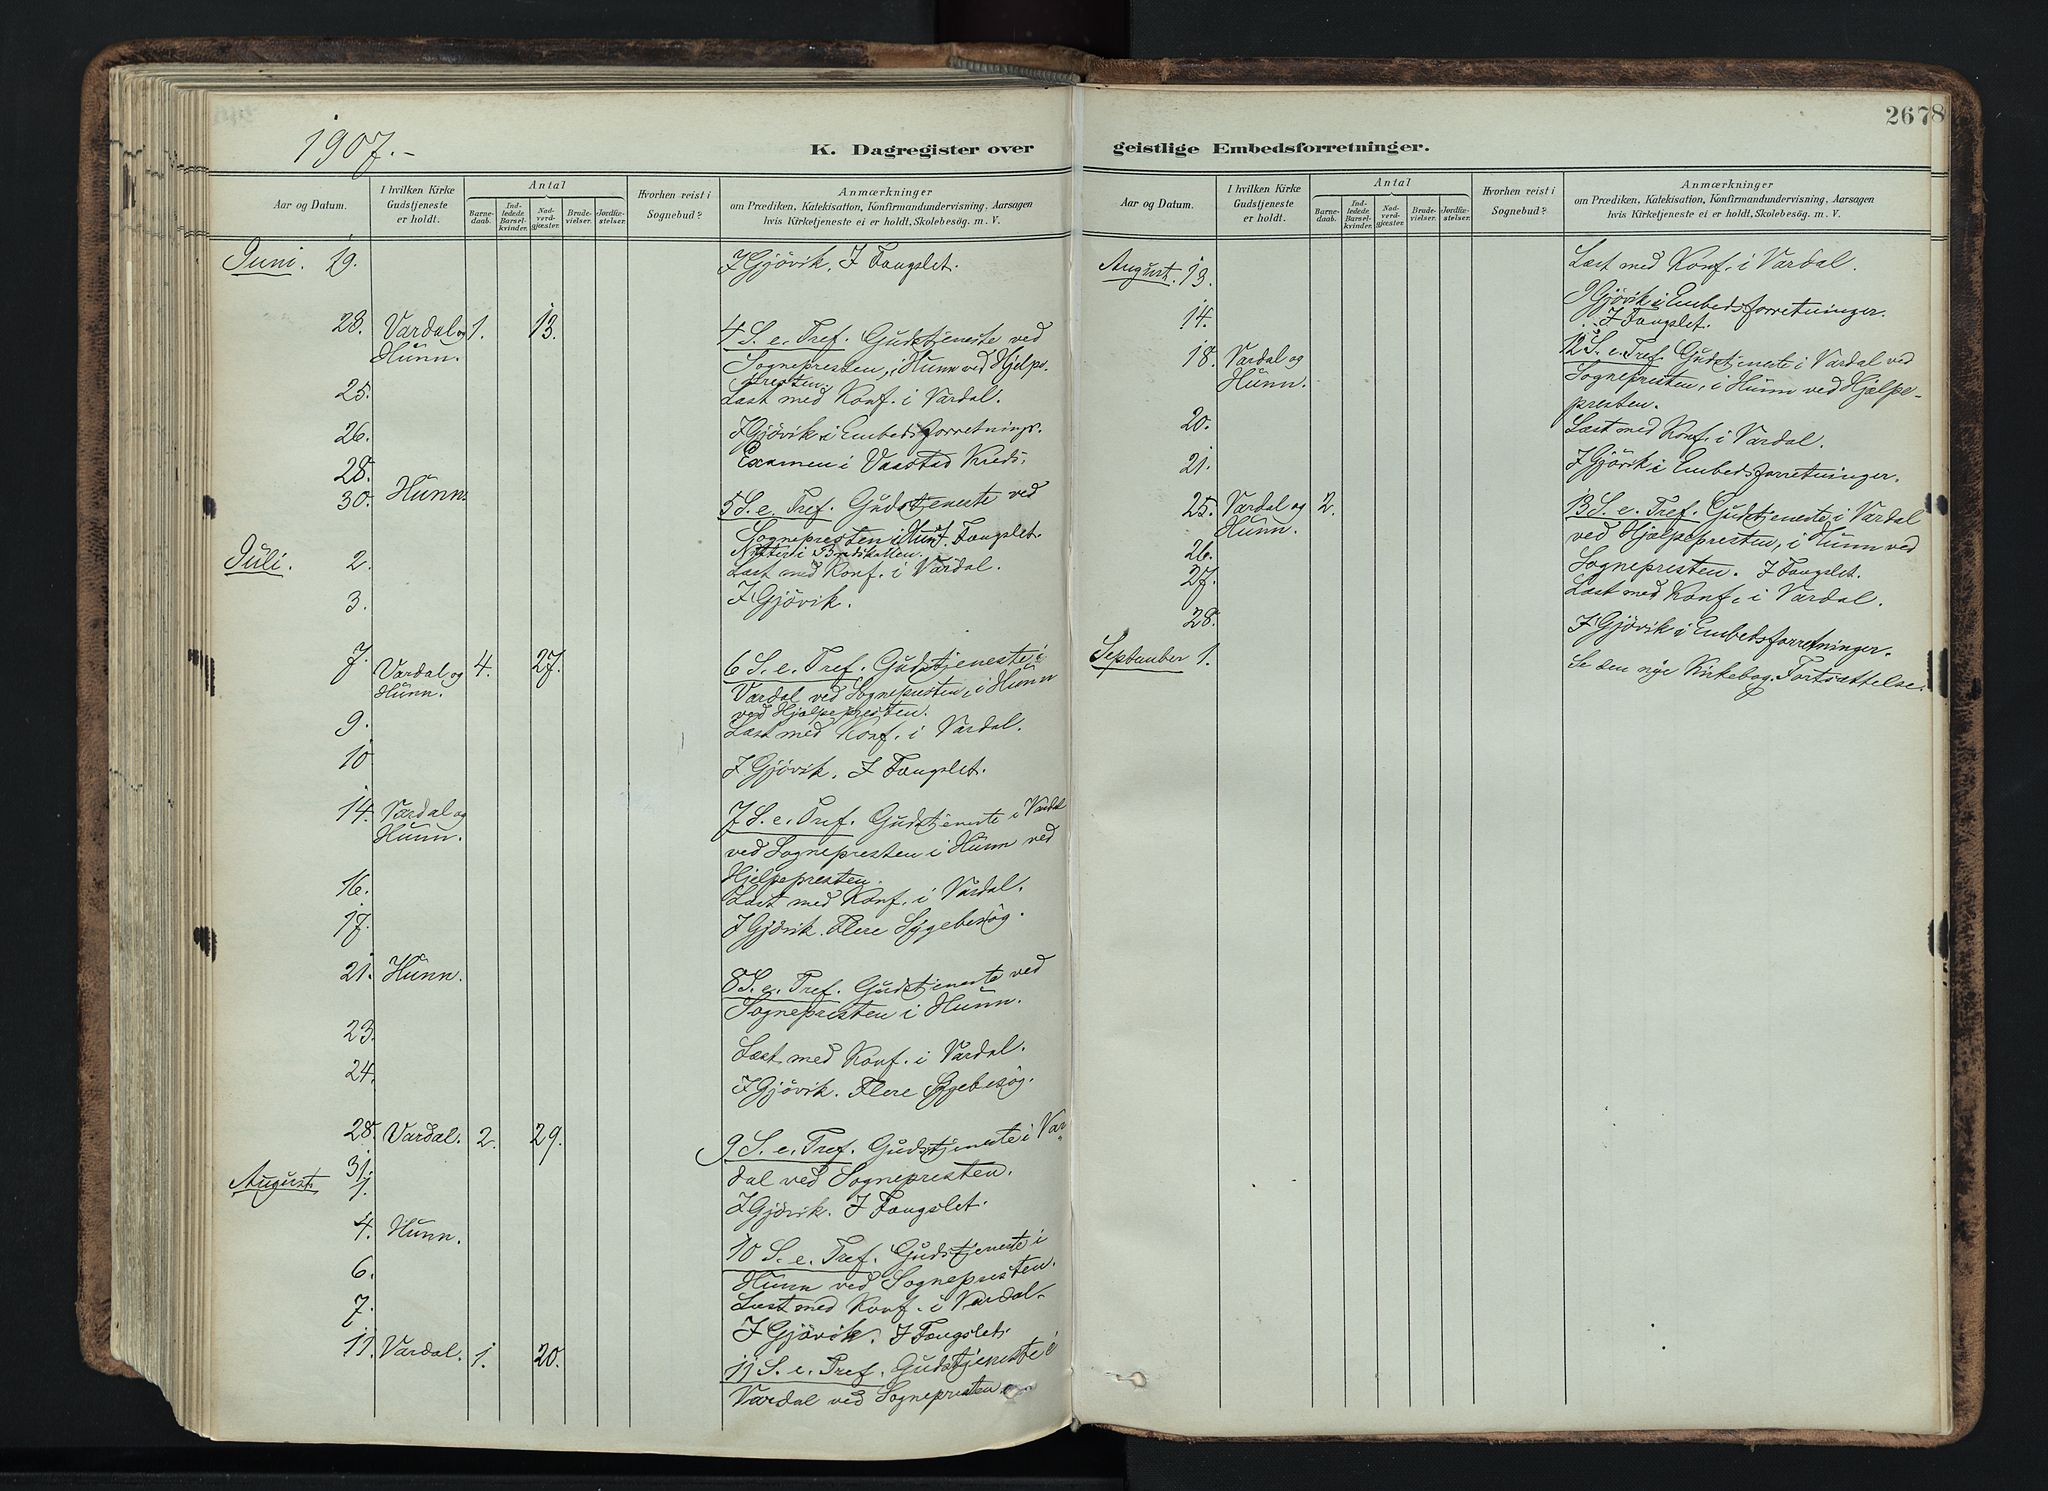 1907.-
K. Dagregister over
Aar og Datum.
I hvilken Kirke Gudstjeneste er holdt.
Antal
Barnedaab.
Indledede Barselkvinder.
Nadverdgjæster.
Brudevielser.
Jordfæstelser.
Hvorhen reist i Sognebud?
Anmærkninger
om Prædiken, Katekisation, Konfirmandundervisning, Aarsagen
hvis Kirketjeneste ei er holdt, Skolebesøg. m. V.
Juni. 19. I Gjövik. I Fangslet.
23. Vardal og Hunn. 1. 13. 4 S. e. Tref. Gudstjeneste ved
Sognepresten, i Hunn ved Hjelpe-
presten.
25. Læst med Konf. i Vardal.
26. I Gjövik i Embedsforretnings.
28. Examen i Vaastad Kreds.
30. Hunn. 5 S. e. Tref. Gudstjeneste ved
Sognepresten i Hun. I Fængslet.
Juli. 2. Læst med Konf. i Vardal.
3. I Gjövik.
7. Vardal og Hunn. 4. 27. 6 S. e. Tref. Gudstjeneste i
Vardal ved Sognepresten, i Hunn
ved Hjælpepresten.
9. Læst med Konf. i Vardal.
10 I Gjövik. I Fængslet.
14. Vardal og Hunn. 7 S. e. Tref. Gudstjeneste i Vardal
ved Sognepresten i Hunn ved
Hjelpepresten.
16. Læst med Konf. i Vardal.
17. I Gjövik. Flere Sygebesög.
21. Hunn. 8 S. e. Tref. Gudstjeneste ved
Sognepresten i Hunn.
23. Læst med Konf. i Vardal.
24. I Gjövik. Flere Sygebesög.
28. Vardal. 2. 29. 9 S. e. Tref. Gudstjeneste i Var-
dal ved Sognepresten.
31.
August 1. I Gjövik. I Fængslet.
4. Hunn. 10 S. e. Tref. Gudstjeneste i
Hunn ved Sognepresten.
6. Læst med Konf. i Vardal.
7. I Gjövik. I Fængslet.
11. Vardal. 1. 20. 11 S. e. Tref. Gudstjeneste i
Vardal ved Sognepresten.
2678
geistlige Embedsforretninger.
Aar og Datum.
I hvilken Kirke Gudstjeneste er holdt.
Antal
Barnedaab.
Indledede Barselkvinder.
Nadverdgjæster.
Brudevielser.
Jordfæstelser.
Hvorhen reist i Sognebud?
Anmærkninger
om Prædiken, Katekisation, Konfirmandundervisning, Aarsagen
hvis Kirketjeneste ei er holdt, Skolebesøg. m. V.
August. 13. Læst med Konf. i Vardal.
14. I Gjövik i Embedsforretninger.
I Fængslet.
18. Vardal og Hunn. 12 S. e. Tref. Gudstjeneste i Vardal ved
Sognepresten, i Hunn ved Hjælpe-
presten.
20. Læst med Konf. i Vardal.
21. I Gjövik i Embedsforretninger.
25. Vardal og Hunn. 2. 13 S. e. Tref. Gudstjeneste i Vardal
ved Hjælpepresten, i Hunn ved
26. Sognepresten. I Fængslet.
27. Læst med Konf. i Vardal.
28. I Gjövik i Embedsforretninger.
September 1. Se den nye Kirkebog. Fortsættelse.